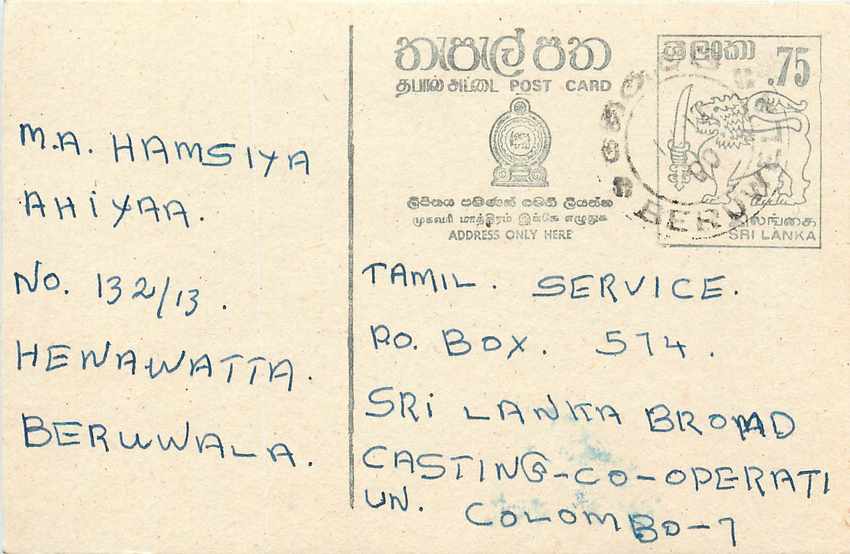 M.A. HAMSIYA
AHiYAA.
No. 132/13.
HENAWATTA.
BERUWALA.
තැපැල් පත
தபால் அட்டை POST CARD
ලිපිනය පමණක් මෙහි ලියන්න
முகவரி மாத்திரம் இங்கே எழுதுக
ADDRESS ONLY HERE
ශ්‍රී ලංකා
.75
இலங்கை
SRI LANKA
BERUWELA
TAMIL. SERVICE.
P.O. BOX. 574.
SRi LANKA BROAD
CASTING-CO-OPERATI
UN. COLOMBO-7